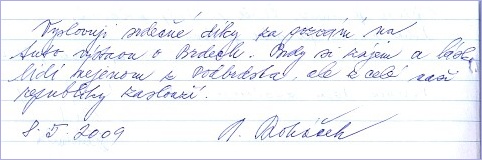 Vyslovuji srdečné díky za pozvání na
tuto výstavu o Brdech. Brdy si zájem a lásku
lidí nejenom z Podbrdska, ale z celé naší
republiky zaslouží.
8. 5. 2009